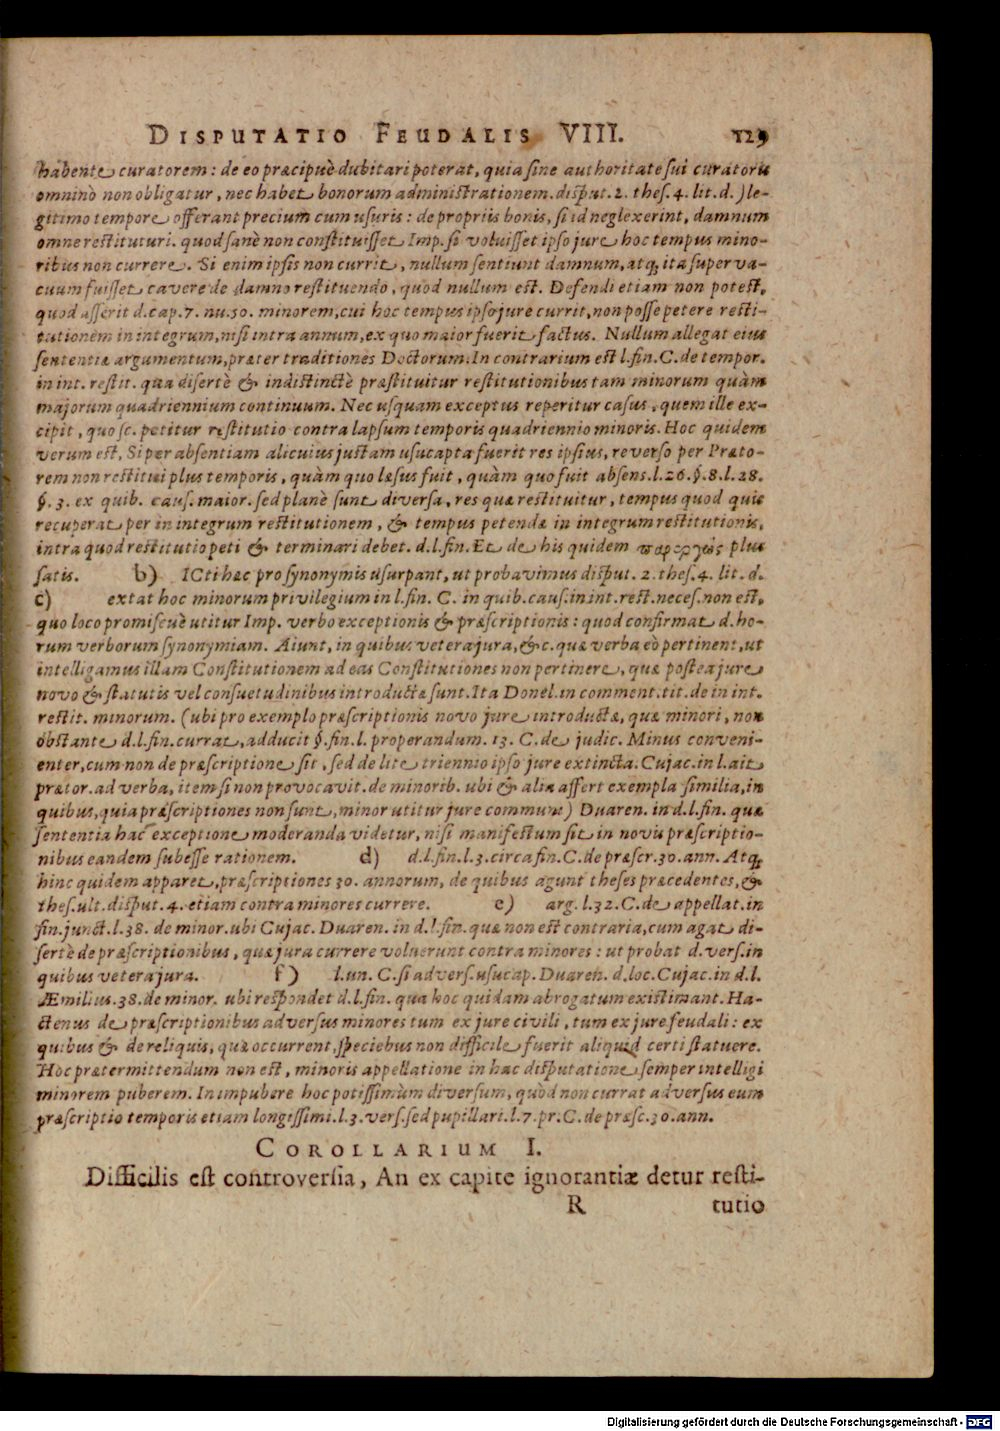 DISPUTATIO FEUDALIS VIII. 129
habente curatorem: de eo præcipuè dubitari poterat, quia sine authoritate sui curatoris
omninò non obligatur, nec habet bonorum administrationem. disput. 2. thes. 4. lit. d.) le-
gitimo tempore offerant precium cum usuris: de propriis bonis, si id neglexerint, damnum
omne restituturi. quod sanè non constituisset Imp. si voluisset ipso jure hoc tempus mino-
ribus non currere. Si enim ipsis non currit, nullum sentiunt damnum, atq; ita superva-
cuum fuisset cavere de damno restituendo, quod nullum est. Defendi etiam non potest,
quod asserit d. cap. 7. nu. 50. minorem, cui hoc tempus ipso jure currit, non posse petere resti-
tutionem in integrum, nisi intra annum, ex quo maior fuerit factus. Nullum allegat eius
sententiæ argumentum, præter traditiones Doctorum. In contrarium est l. fin. C. de tempor.
in int. restit. qua disertè & indistinctè præstituitur restitutionibus tam minorum quàm
majorum quadriennium continuum. Nec usquam exceptus reperitur casus, quem ille ex-
cipit, quo sc. petitur restitutio contra lapsum temporis quadriennio minoris. Hoc quidem
verum est, Si per absentiam alicuius justam usucapta fuerit res ipsius, reverso per Præto-
rem non restitui plus temporis, quàm quo læsus fuit, quàm quo fuit absens. l. 26. §. 8. l. 28.
§. 3. ex quib. caus. maior. sed planè sunt diversa, res quæ restituitur, tempus quod quis
recuperat per in integrum restitutionem, & tempus petendæ in integrum restitutionis,
intra quod restitutio peti & terminari debet. d. l. fin. Et de his quidem παρεργῶς plus
satis. b) ICti hæc pro synonymis usurpant, ut probavimus disput. 2. thes. 4. lit. d.
c) extat hoc minorum privilegium in l. fin. C. in quib. caus. in int. rest. neces. non est,
quo loco promiscuè utitur Imp. verbo exceptionis & præscriptionis: quod confirmat d. ho-
rum verborum synonymiam. Aiunt, in quibus vetera jura, &c. quæ verba eò pertinent, ut
intelligamus illam Constitutionem ad eas Constitutiones non pertinere, quæ postea jure
novo & statutis vel consuetudinibus introductæ sunt. Ita Donel. in comment. tit. de in int.
restit. minorum. (ubi pro exemplo præscriptionis novo jure introductæ, quæ minori, non
obstante d. l. fin. currat, adducit §. fin. l. properandum. 13. C. de judic. Minus conveni-
enter, cum non de præscriptione sit, sed de lite triennio ipso jure extincta. Cujac. in l. ait
prætor. ad verba, item si non provocavit. de minorib. ubi & alia affert exempla similia, in
quibus, quia præscriptiones non sunt, minor utitur jure commune) Duaren. in d. l. fin. quæ
sententia hac exceptione moderanda videtur, nisi manifestum sit in novis præscriptio-
nibus eandem subesse rationem. d) d. l. fin. l. 3. circa fin. C. de præscr. 30. ann. Atq;
hinc quidem apparet, præscriptiones 30. annorum, de quibus agunt theses præcedentes, &
thes. ult. disput. 4. etiam contra minores currere. e) arg. l. 32. C. de appellat. in
fin. junct. l. 38. de minor. ubi Cujac. Duaren. in d. l. fin. quæ non est contraria, cum agat di-
sertè de præscriptionibus, quæ jura currere voluerunt contra minores: ut probat d. vers. in
quibus vetera jura. f) l. un. C. si advers. usucap. Duaren. d. loc. Cujac. in d. l.
Æmilius. 38. de minor. ubi respondet d. l. fin. qua hoc quidam abrogatum existimant. Ha-
ctenus de præscriptionibus adversus minores tum ex jure civili, tum ex jure feudali: ex
quibus & de reliquis, quæ occurrent, speciebus non difficile fuerit aliquid certi statuere.
Hoc prætermittendum non est, minoris appellatione in hac disputatione semper intelligi
minorem puberem. In impubere hoc potissimùm diversum, quòd non currat adversus eum
præscriptio temporis etiam longissimi. l. 3. vers. sed pupillari. l. 7. pr. C. de præsc. 30. ann.
COROLLARIUM I.
Difficilis est controversia, An ex capite ignorantiæ detur resti-
R tutio
Digitalisierung gefördert durch die Deutsche Forschungsgemeinschaft - DFG